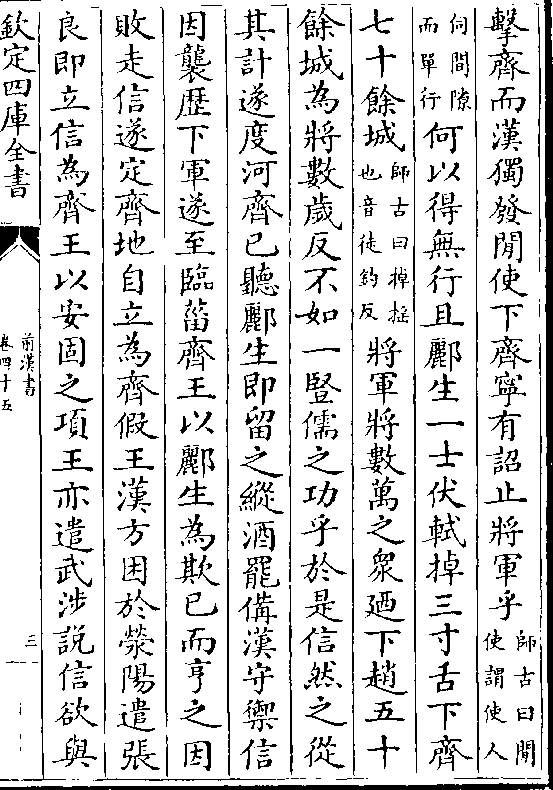 擊齊而漢獨發閒使下齊寧有詔止將軍乎師古曰閒使謂使人
伺間隙而單行何以得無行且酈生一士伏軾掉三寸舌下齊
七十餘城師古曰掉摇也音徒釣反將軍將數萬之衆廼下趙五十
餘城為將數歲反不如一豎儒之功乎於是信然之從
其計遂度河齊已聽酈生即留之縱酒罷備漢守禦信
因襲歷下軍遂至臨菑齊王以酈生為欺已而亨之因
敗走信遂定齊地自立為齊假王漢方困於滎陽遣張
良即立信為齊王以安固之項王亦遣武涉說信欲與
欽定四庫全書
前漢書
卷四十五
三